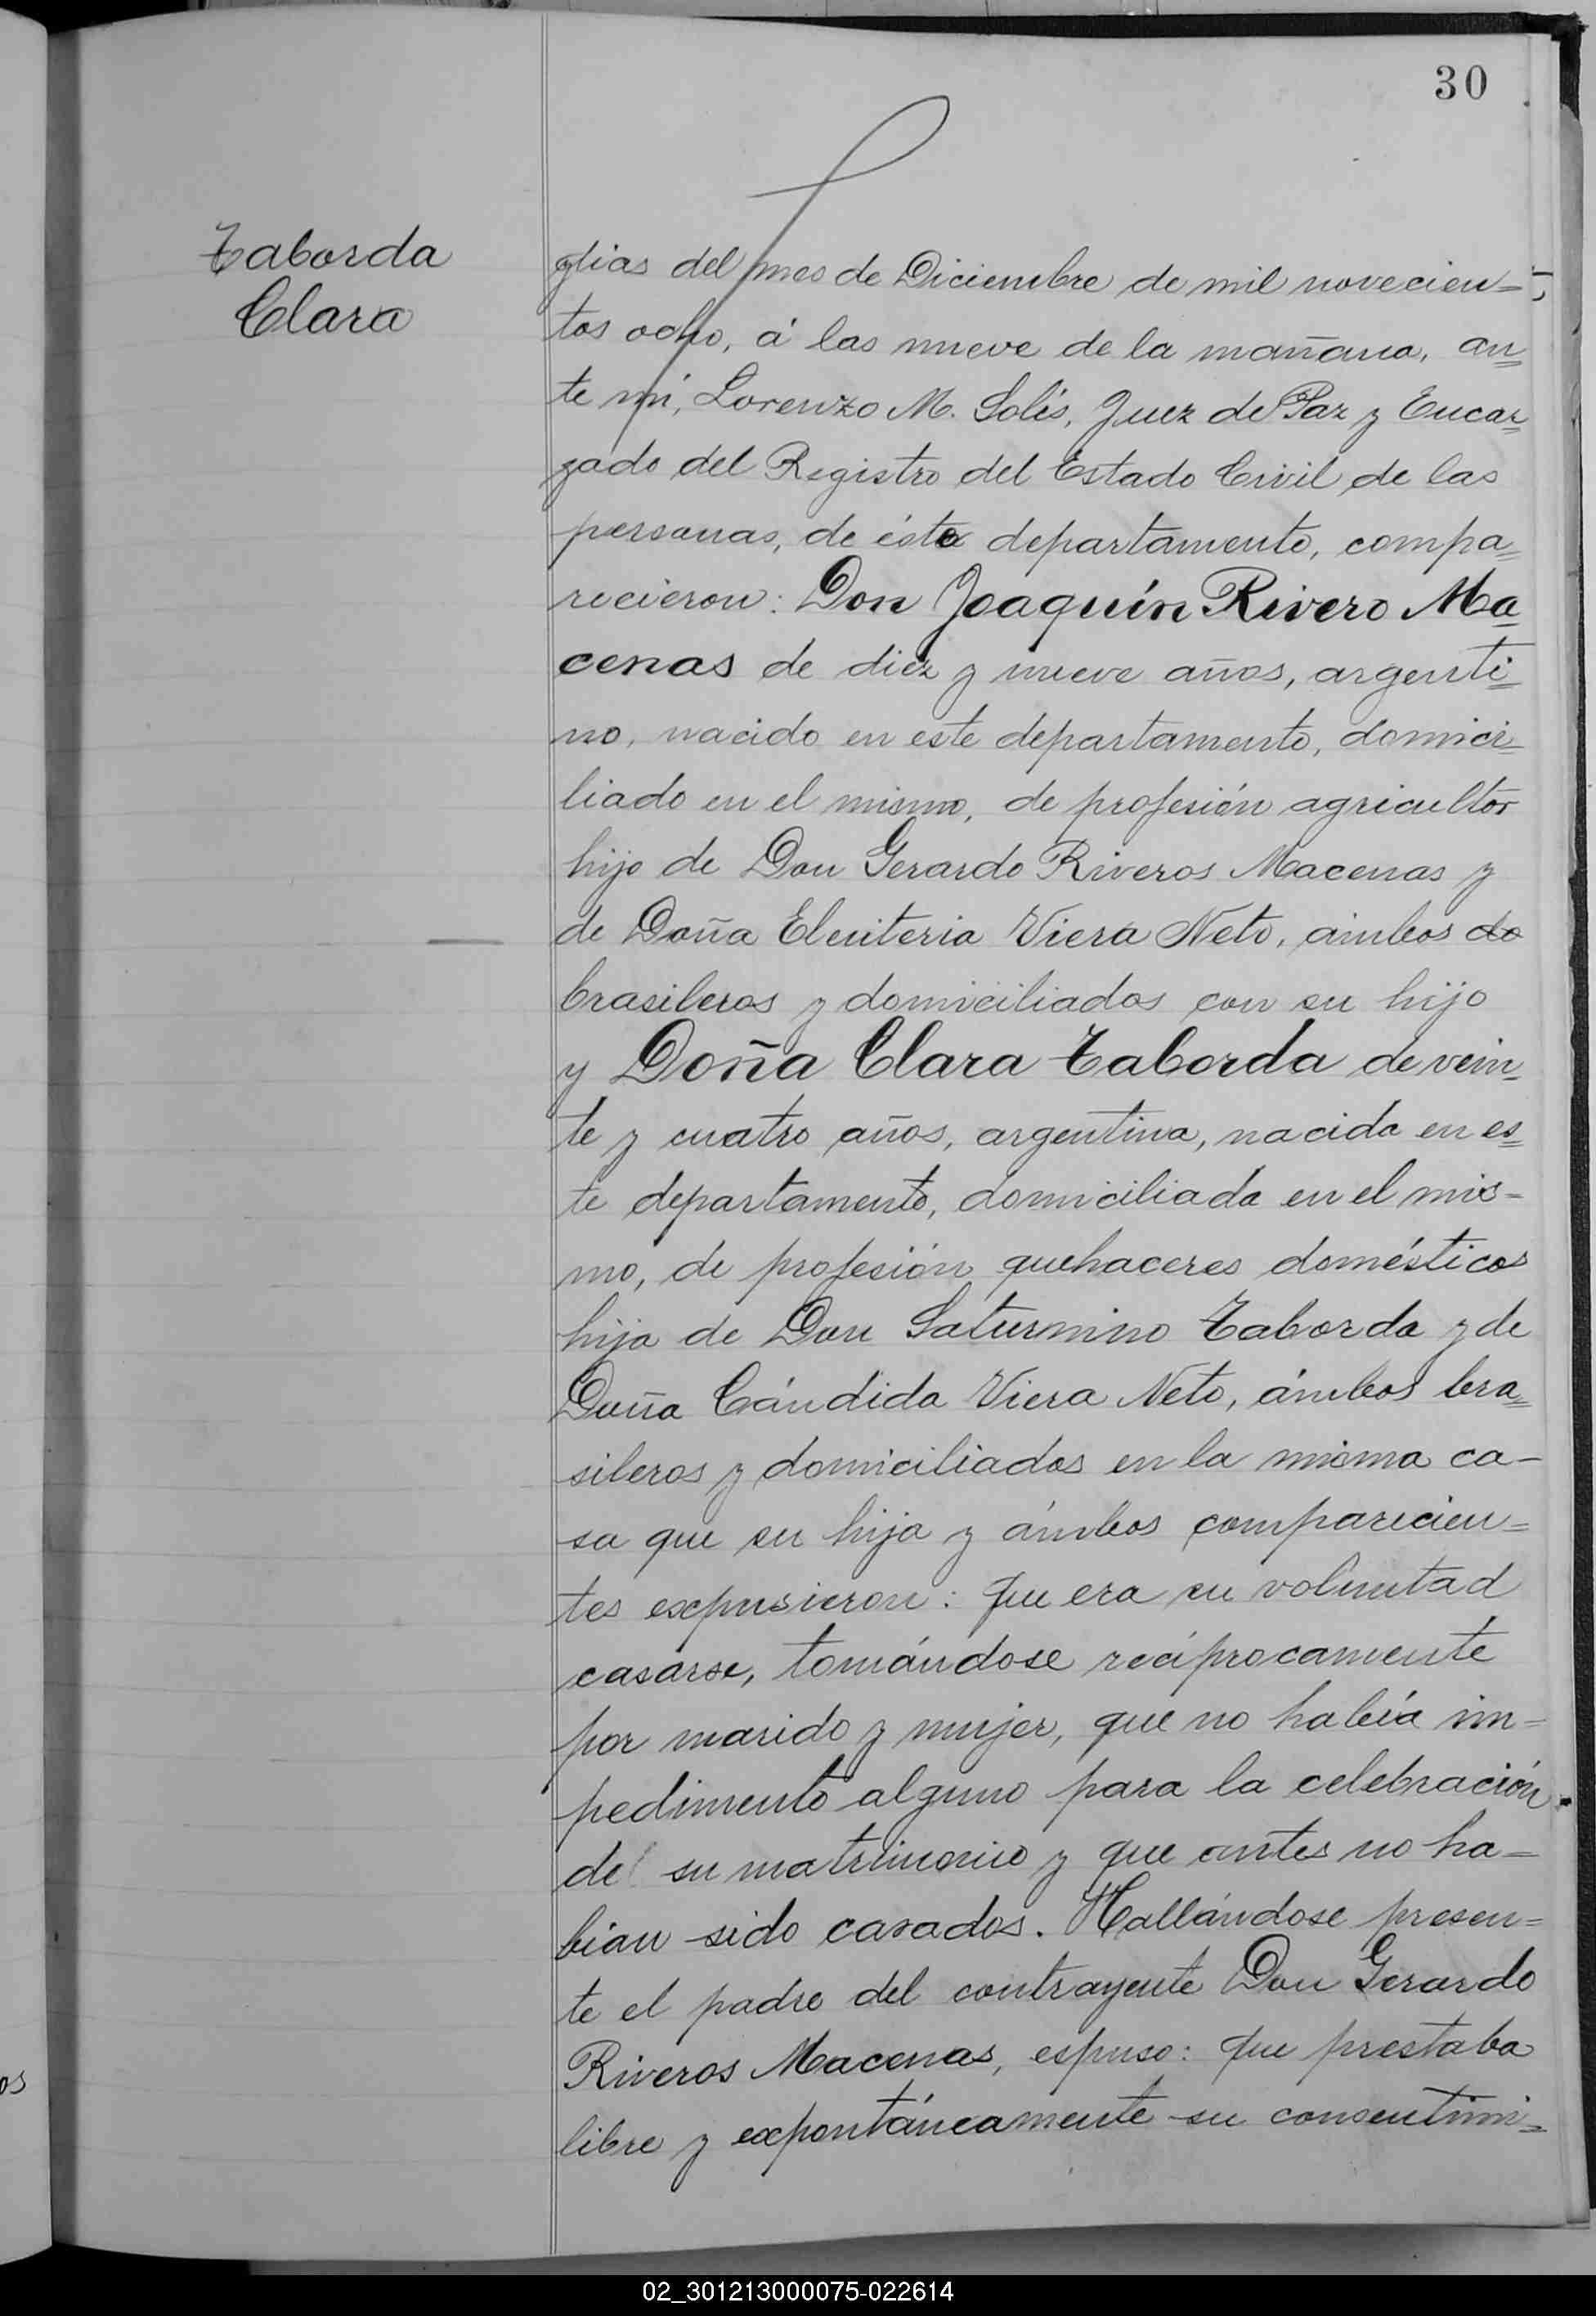 30
Taborda
Clara
dias del mes de Diciembre de mil novecien=
tos ocho, á las nueve de la mañana, an=
te mí, Lorenzo M. Solís, Juez de Paz y Encar=
gado del Registro del Estado Civil de las
personas, de éste departamento, compa=
recieron: Don Joaquín Rivero Ma=
cenas de diez y nueve años, argenti=
no, nacido en este departamento, domici=
liado en el mismo, de profesión agricultor
hijo de Don Gerardo Riveros Macenas y
de Doña Eleuteria Viera Neto, ámbos do
brasileros y domiciliados con su hijo
y Doña Clara Taborda de vein=
te y cuatro años, argentina, nacida en es=
te departamento, domiciliada en el mis-
mo, de profesión quehaceres domésticos
hija de Don Saturnino Taborda y de
Doña Cándida Viera Neto, ámbos bra=
sileros y domiciliados en la misma ca-
sa que su hija y ámbos comparecien=
tes expusieron: Que era su voluntad
casarse, tomándose recíprocamente
por marido y mujer, que no había im=
pedimento alguno para la celebración
de su matrimonio y que antes no ha=
bían sido casados. Hallándose presen=
te el padre del contrayente Don Gerardo
Riveros Macenas, espuso: Que prestaba
libre y expontáneamente su consentimi=
os
02_301213000075-022614